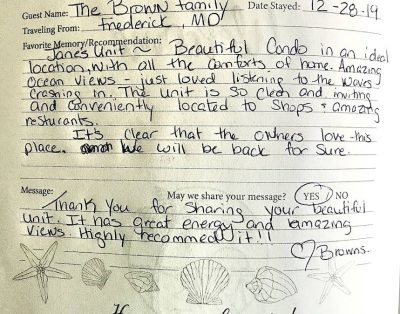 Guest Name: The Brown Family Date Stayed: 12-28-19
Traveling From: Frederick, MD
Favorite Memory/Recommendation:
Janes Unit ~ Beautiful Condo in an ideal
location, with all the comforts of home. Amazing
Ocean views - just loved listening to the waves
crashing in. The unit is so clean and inviting
and conveniently located to shops + amazing
resturants.
It's clear that the owners love this
place. We will be back for sure.
Message: May we share your message? YES / NO
Thank you for sharing your beautiful
unit. It has great energy and amazing
views. Highly recommed it!!
Browns